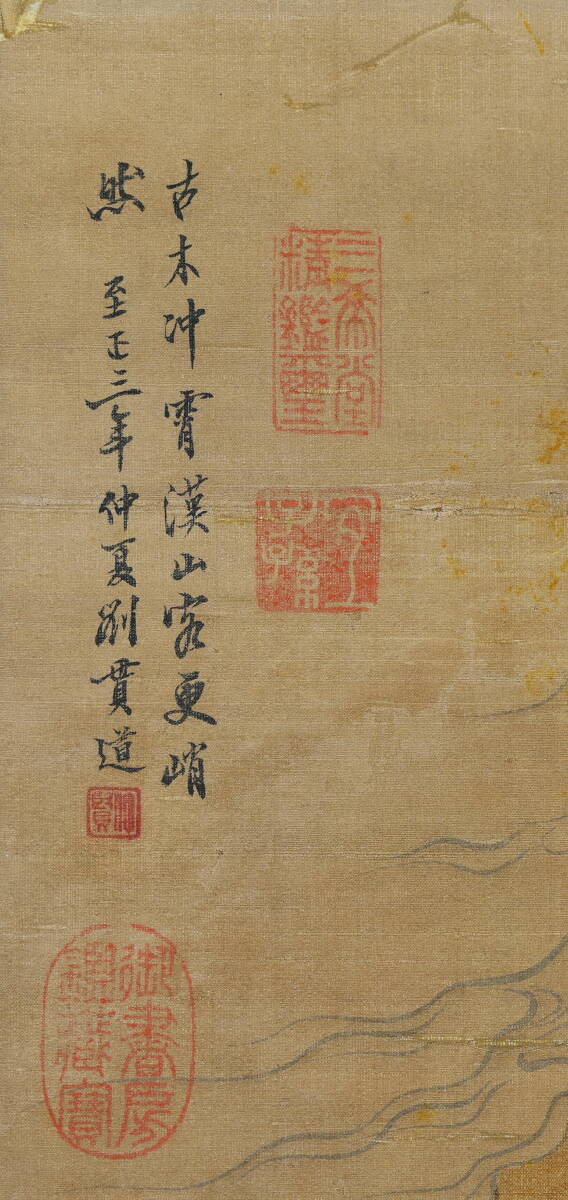 三希堂
精鑑璽
宜子孫
古木冲霄漢山容更峭
然 至正三年仲夏劉貫道
仲賢
御書房
鑑藏寶